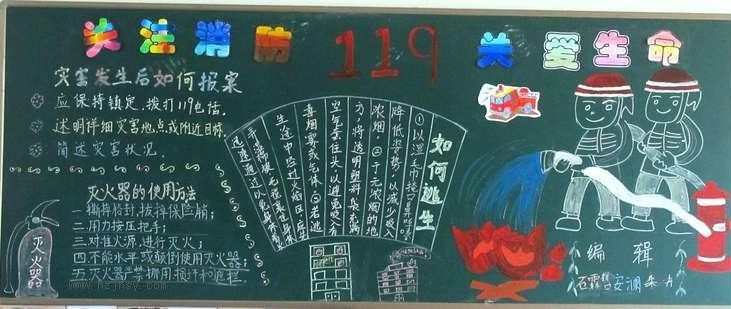 关注消防 119 关爱生命
灾害发生后如何报案
应保持镇定,拨打119电话。
述明详细灾害地点或附近目标。
简述灾害状况。
灭火器的使用方法
一.撕掉铅封,拔掉保险销;
二.用力按压把手;
三.对准火源,进行灭火;
四.不能水平或颠倒使用灭火器;
五.灭火器严禁挪用
灭火器
如何逃生
①以湿毛巾掩口鼻
降低姿势,以减少吸
浓烟。②于无浓烟的地
方,将透明塑料袋充满
空气套住头,以避免吸
毒烟雾或气体。③若逃
生途中经过火焰区,应
编辑